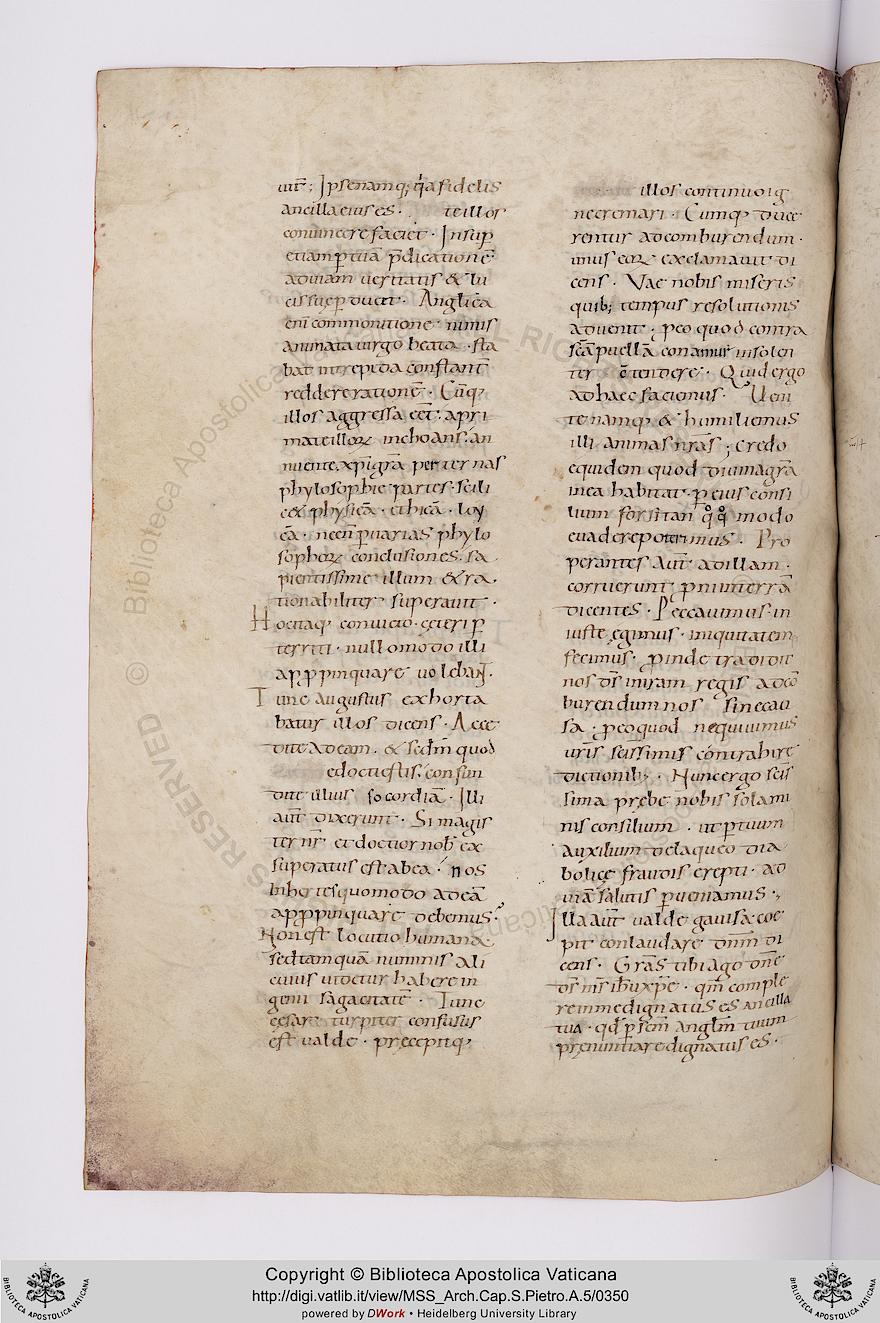 uit̄; Ipsenamq; q̄a fidelis
ancilla eius es · te illos
conuincere faciet · Insup̄
etiam p̄ tuā p̄dicationē
ad uiam ueritatis & lu
cis sup̄ducet · Anglica
eni commonitione nimis
animata uirgo beata · sta
bat intrepida constant̄
reddere rationē · Cūq;
illos aggressa eēt · a pri
mate illoꝝ inchoans · an
nuente xp̄i gr̄a per ternas
phylosophie partes · scili
c& physicā · ethicā · loy
cā · necn̄ p̄ uarias phylo
sophoꝝ conclusiones · sa
pientissime illum & ra
tionabiliter superauit ·
Hoc itaq; conuicto · ceteri p̄
territi · nullomodo illi
appropinquare uolebant ·
Tunc augustus exhorta
batur illos dicens · Acce
dite ad eam · & secd̄m quod
edocti estis · confun
dite illius socordiā · Illi
aut̄ dixerunt · Si magis
ter nr̄ et doctior nob̄ ex
superatus est ab ea · nos
hihertes quomodo ad eā
appropinquare debemus ·
Non est locutio humana
sed tamquā numinis ali
cuius uidetur habere in
genii sagacitatē · Tunc
cesar turpiter confusus
est ualde · precepitq;
illos continuo ig
ne cremari · Cumq; duce
rentur ad comburendum ·
unus eoꝝ exclamauit di
cens · Vae nobis miseris
quib; tempus resolutionis
aduenit · p̄ eo quod contra
sc̄ā puellā conamur insolen
ter c̄tendere · Quid ergo
ad haec faciemus · Veni
te namq; & humiliemus
illi animas nr̄as; credo
equidem quod diuina gr̄a
in ea habitat · p̄ eius consi
lium forsitan q̊q̊ modo
euadere poterimus · Pro
perantes aut̄ ad illam ·
corruerunt p̄ni in terrā
dicentes · Peccauimus · in
iuste egimus · iniquitatem
fecimus · p̄inde tradidit
nos ds̄ in iram regis ad cō
burendum nos sine cau
sa · p̄ eo quod nequiuimus
uris scissimis contrahire
dictionib; · Nunc ergo scis
sima prebe nobis solami
nis consilium · ut p̄ tuum
auxilium de laqueo dia
bolice fraudis erepti · ad
uiā salutis p̄ueniamus ·
Illa aut̄ ualde gauisa coe
pit conlaudare dn̄m di
cens · Gr̄as tibi ago dn̄e
ds̄ mr̄ ihu xp̄e · qm̄ comple
re in me dignatus es ancilla
tua · qd̄ p̄ scm̄ anglm̄ tuum
prenuntiare dignatus es ·
Copyright © Biblioteca Apostolica Vaticana
http://digi.vatlib.it/view/MSS_Arch.Cap.S.Pietro.A.5/0350
powered by DWork • Heidelberg University Library